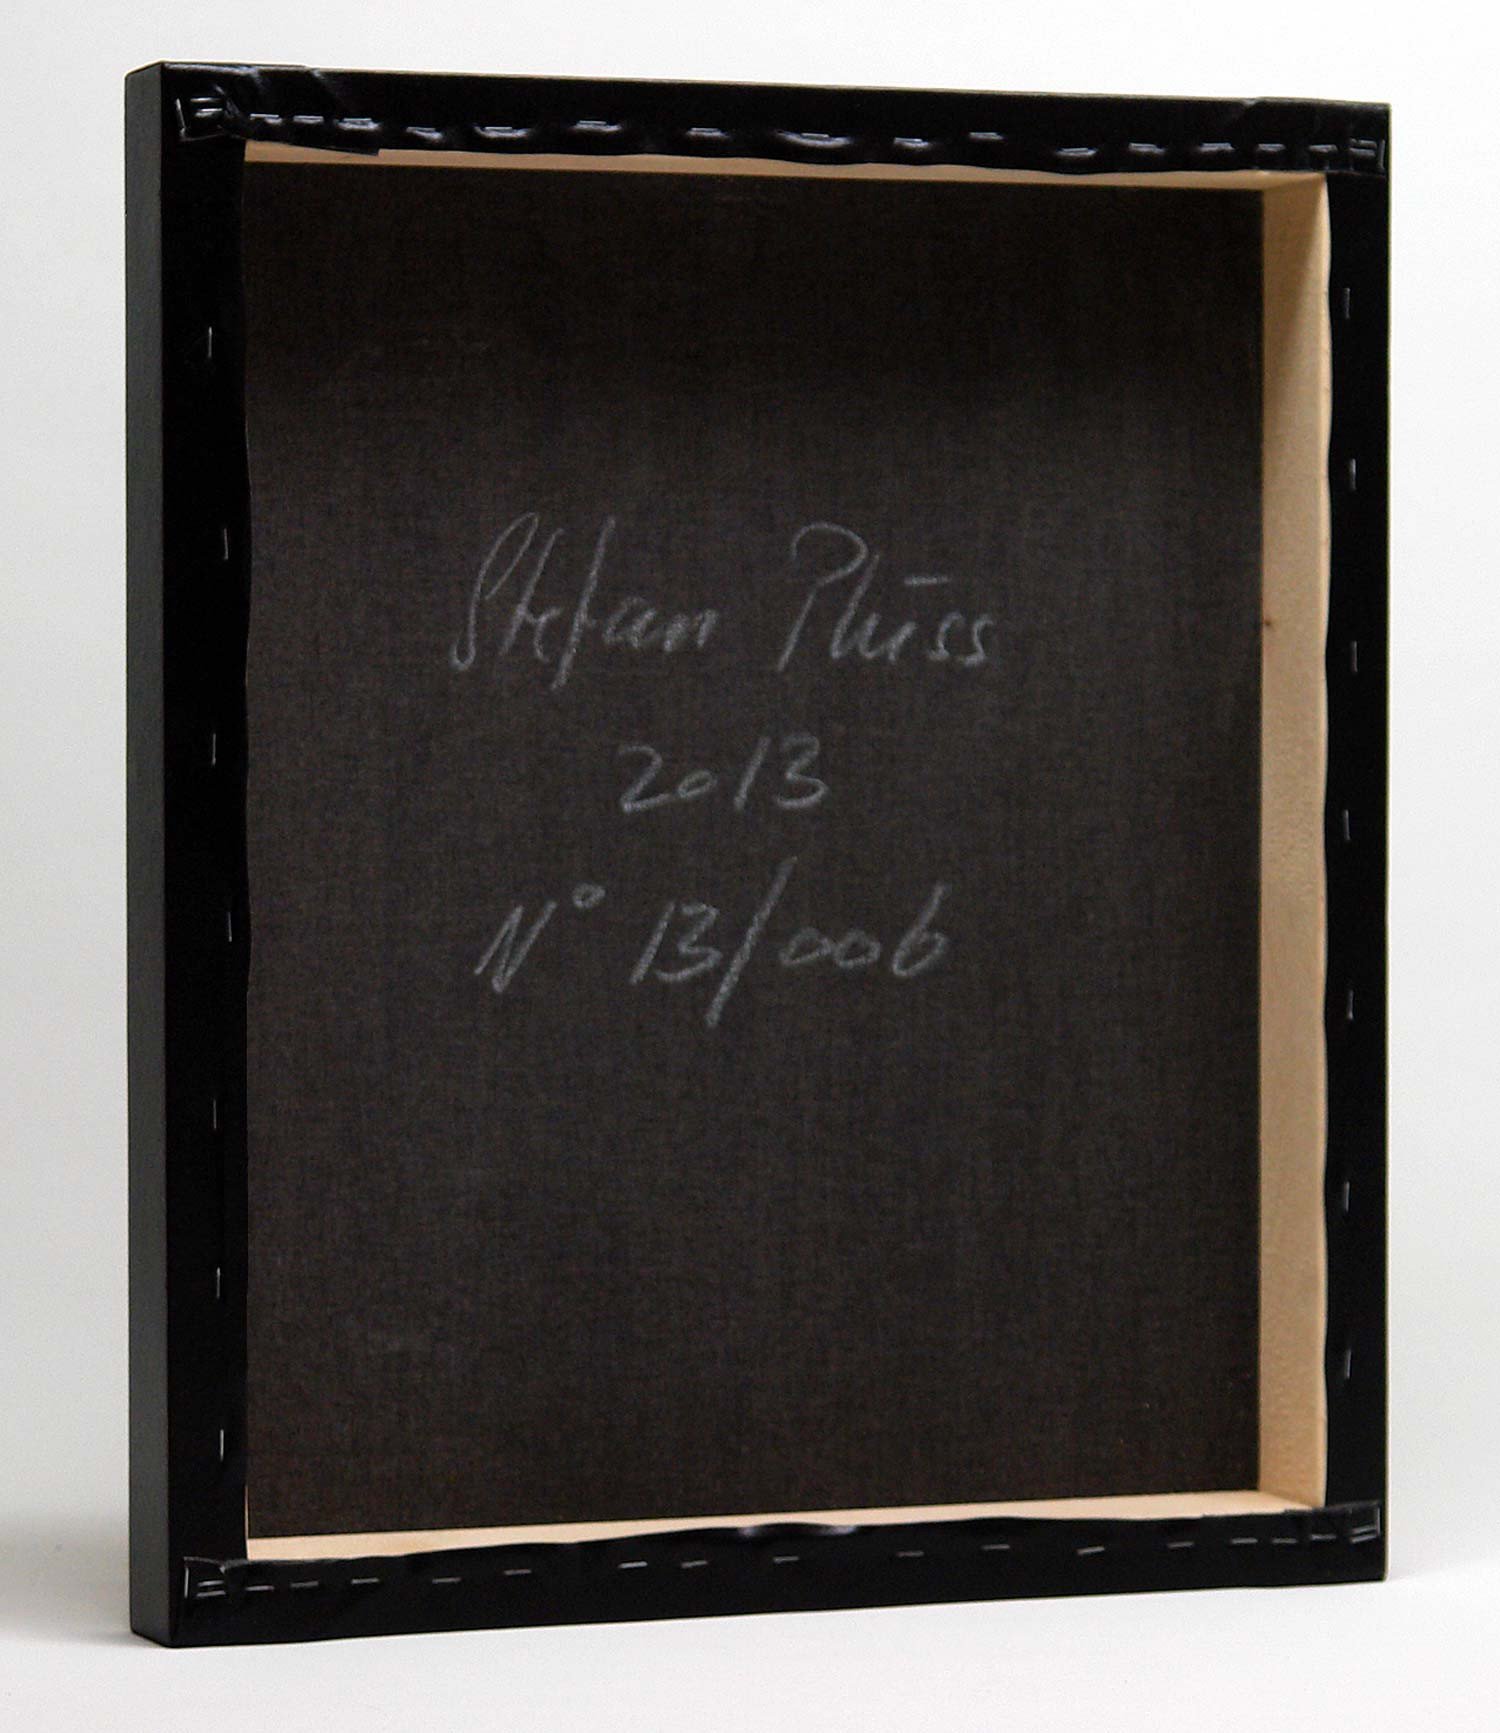 Stefan Plüss
2013
N° 13/006